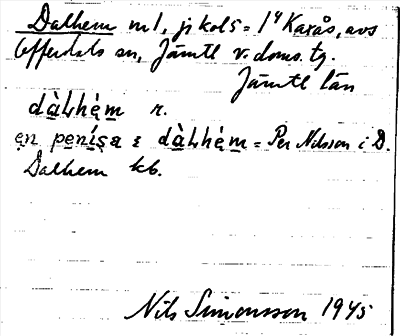 Dalhem m1, jr kol5 = 1⁴ Kaxås, avs
Offerdals sn, Jämtl v. doms. tg.
Jämtl län
dàLhèm r.
en penísa i dàLhèm = Per Nilsson i D.
Dalhem kb.
Nils Simonsson 1945